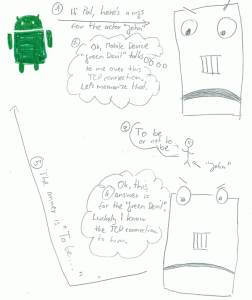 1
Hi Pal, here's a msg
for the actor "John"
2
Oh, Mobile Device
"green Devil" talks
to me over this
TCP connection,
Let's memorize that.
3
To be
or not to
be
"John"
6
Oh, this
answer is
for the "green Devil",
luckily I know
the TCP connection
to him.
The answer is "To be...